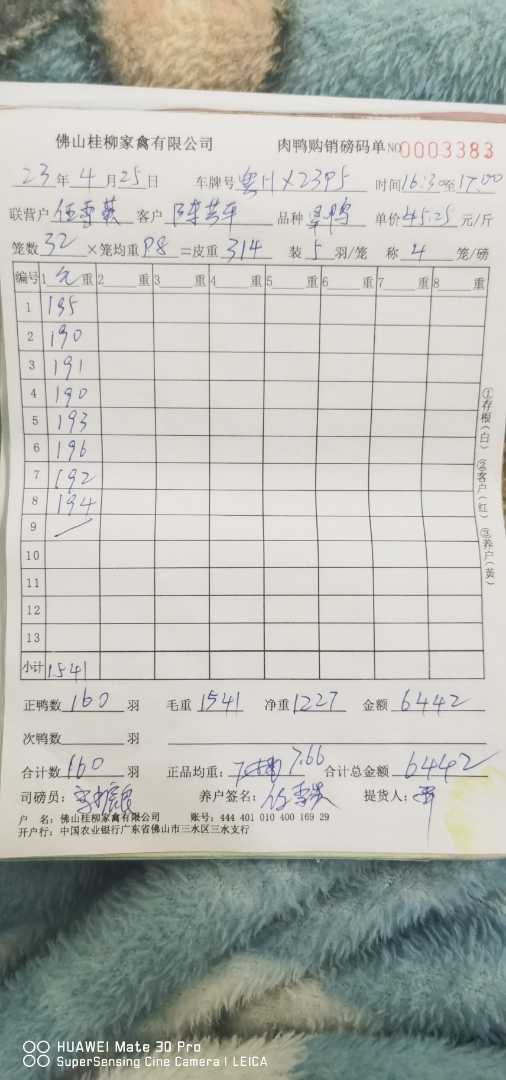 佛山桂柳家禽有限公司 肉鸭购销磅码单 NO 0003383
23年4月25日 车牌号 粤HX2395 时间16:30至17:00
联营户 客户 品种 单价 5.25 元/斤
笼数32×笼均重9.8=皮重314 装5羽/笼 称4笼/磅
编号 1毛重 2 重 3 重 4 重 5 重 6 重 7 重 8 重
1 195
2 190
3 191
4 190
5 193
6 196
7 192
8 194
9
10
11
12
13
小计 1541
①存根(白) ②客户(红) ③养户(黄)
正鸭数160羽 毛重1541 净重1227 金额6442
次鸭数 羽
合计数160羽 正品均重: 7.66 合计总金额6442
司磅员: 养户签名: 提货人:
户 名: 佛山桂柳家禽有限公司 账号: 444 401 010 400 169 29
开户行: 中国农业银行广东省佛山市三水区三水支行
HUAWEI Mate 30 Pro
SuperSensing Cine Camera | LEICA